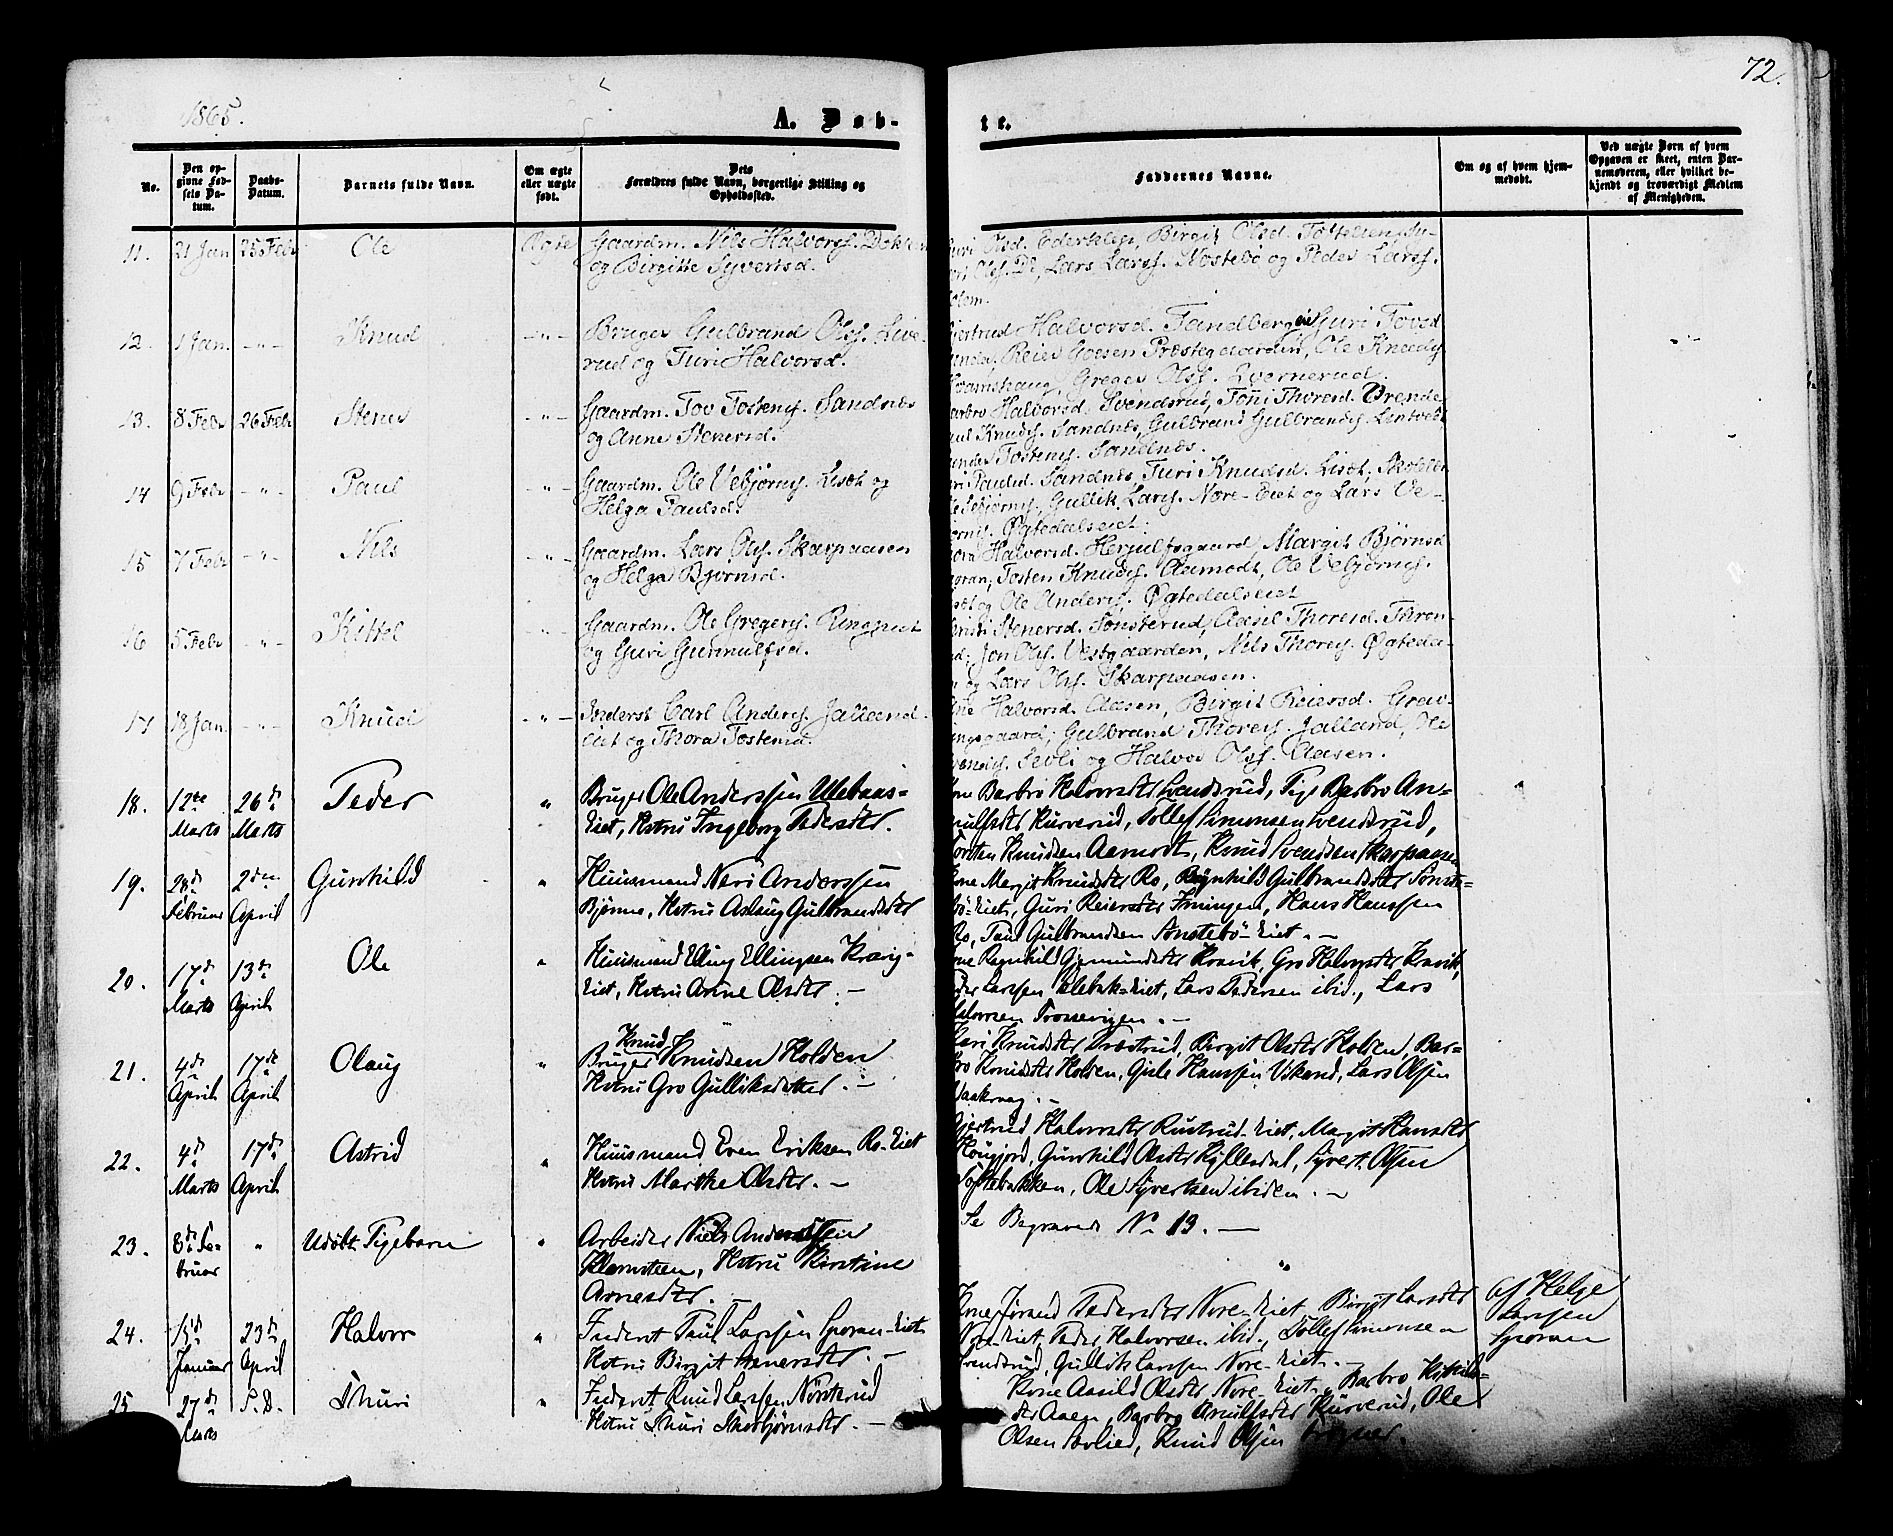 1865.
72.
A. Døb-
te.
No.
Den op-
givne Fød-
sels Da-
tum.
Daabs-
Datum.
Barnets fulde Navn.
Om ægte
eller uægte
født.
Dets
Forældres fulde Navn, borgerlige Stilling og
Opholdssted.
Faddernes Navne.
Om og af hvem hjem-
medøbt.
Ved uægte Børn af hvem
Opgaven er skeet, enten Bar-
nemoderen, eller hvilket be-
kjendt og troværdigt Medlem
af Menigheden.
11.
21 Jan
25 Febr
Ole
Ægte
Gaardm. Nils Halvors.
og Birgitte Syvertsd.
Birgit Olsd.
Lars Larss. Nostebø og Peder Larss.
12.
1 Jan.
Knud
Bruger Gulbrand Olss. Live-
rud og Turi Halvorsd.
Halvorsd. Sandbergeiet Guri Tovsd
Reier Præstegaarden, Ole Knuds.
Greger Olss. Qvernerud.
13.
8 Febr
26 Febr
Stener
Gaardm. Tov Tostens. Sandnes
og Anne Stenersd.
Halvorsd. Svendsrud, Thoresd.
Knuds. Sandnes, Gulbrand Gulbrands.
Tostens. Sandnes.
14
9 Febr
Paul
Gaardm. Ole Vebjørns. Liset og
Helga Paulsd.
Paulsd. Sandnes, Turi Knudsd. Liset,
Gullik Lars. Nore-Eiet og Lars Ve-
Øgtedalseiet.
15
7 Febr
Nils
Gaardm. Lars Ols. Skarpaasen
og Helga Bjørnsd.
Halvorsd. Herjulfsgaard, Margit Bjørnsd
Tosten Knuds. Aamodt, Ole Vebjørns.
og Ole Anders. Øgtedalseiet
16
5 Febr
Kittel
Gaardm. Ole Gregers. Ringneet
og Guri Gunnulfsd.
Stenersd. Sønsterud, Aasil Thoresd.
Jon Ols. Vestgaarden, Nils Thores. Øgteda-
og Lars Ols. Skarpaasen.
17
18 Jan.
Knud
Inderst Carl Anders. Jalland-
eiet og Thora Tostensd.
Halvorsd. Aasen, Birgit Reiersd. Grav-
Gulbrand Thores. Jalland, Ole
Sevli og Halvor Olss. Aasen.
18.
12te
Marts
26de
Marts
Peder
Bruger Ole Anderssen Ulebaas-
Eiet, Hstru Ingeborg Pedersdtr.
Kone Barbro Halvorsdtr Svendsrud, Pige Barbro An-
Kurverud, Tollef Simonsen Svendsrud,
Knudsen Aamodt, Knud Svendsen Skarpaasen
19.
28de
Februar
2den
April
Gunhild
Huusmand Neri Anderssen
Bjønne, Hstru Aslaug Gulbrandsdtr
Kone Margit Knudsdtr Ro, Ragnhild Gulbrandsdtr Sønste-
bø-Eiet, Guri Reiersdtr Frøningen, Hans Hanssen
Ro, Paul Gulbrandsen Sønstebø-Eiet. –
20.
17de
Marts
13de
April
Ole
Huusmand Elling Ellingsen Kravig-
Eiet, Hstru Anne Olsdtr. –
Kone Ragnhild Gjermundsdtr Kravik, Gro Halvorsdtr Kravik,
Larssen Ulebak-Eiet, Lars Pedersen ibid., Lars
Halvorsen
21.
4de
April
17de
April
Olaug
Knud
Bruger Knudsen Holden
Hstru Gro Gulliksdatter. –
Kari Knudsdtr Bratrud, Birgit Olsdtr Holden, Bar-
bro Knudsdtr Holden, Gisle Hanssen Vikand, Lars Olsen
22.
4de
Marts
17de
April
Astrid
Huusmand Even Eriksen Ro-Eiet
Hstru Marthe Olsdtr. –
Gjertrud Halvorsdtr Rustrud-Eiet, Margit Hansdtr
Gunhild Olsdtr Kyllesdal, Syvert Olsen
Toftebakken, Ole Syvertsen ibidem. –
23.
8de Fe-
bruar
"
Udøbt Pigebarn
Arbeider Niels Anderssen
Hstru Kirstine
Arnesdtr. –
Se Begravede No 13. –
24.
15de
Januar
23de
April
Halvor
Inderst Paul Larssen Sporan-Eiet
Hstru Birgit Stenersdtr. –
Kone Jorand Pedersdtr Nore-Eiet, Birgit Larsdtr
Nore-Eiet, Peder Halvorsen ibid., Tollef Simonsen
Svendsrud, Gullik Larssen Nore-Eiet. –
af Helge
Larssen
Sporan
25
27de
Marts
S.D.
Thuri
Inderst Knud Larssen Nørstrud
Hstru Thuri Thorbjørnsdtr. –
Kone Aasild Olsdtr Nore-Eiet, Barbro Kittils-
dtr Aasen, Barbro Arnulfsdtr Kurverud, Ole
Olsen Sevlied, Knud Olsen